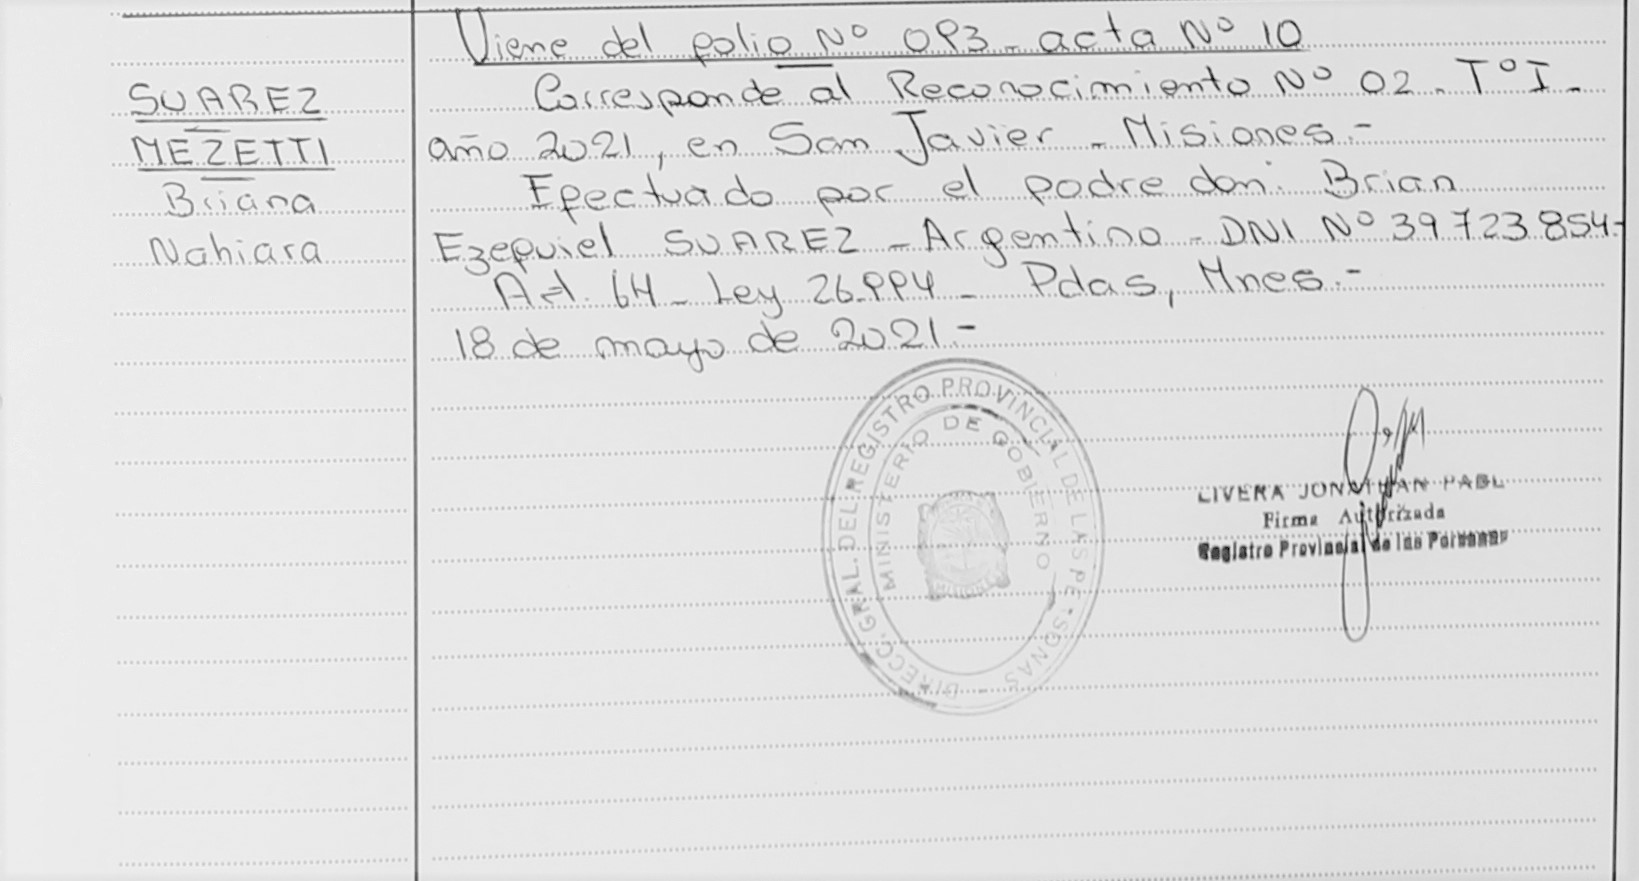 Viene del folio Nº 093 - acta Nº 10
SUAREZ
MEZETTI
Briana
Nahiara
Corresponde al Reconocimiento Nº 02 - Tº I -
año 2021, en San Javier - Misiones.-
Efectuado por el padre don: Brian
Ezequiel SUAREZ - Argentino - DNI Nº 39723854-
Art. 64 - Ley 26.994 - Pdas, Mnes.-
18 de mayo de 2021.-
DIRECC. GRAL. DEL REGISTRO PROVINCIAL DE LAS PE SONAS -
MINISTERIO DE GOBIERNO
LIVERA JONATHAN PABL
Firma Autorizada
Registro Provincial de las Personas